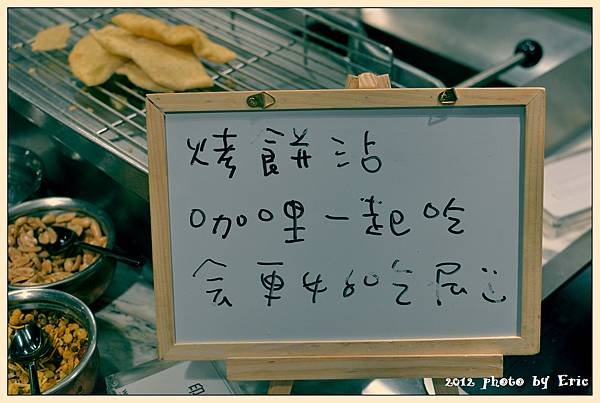 烤餅沾
咖哩一起吃
会更好吃
2012 photo by Eric